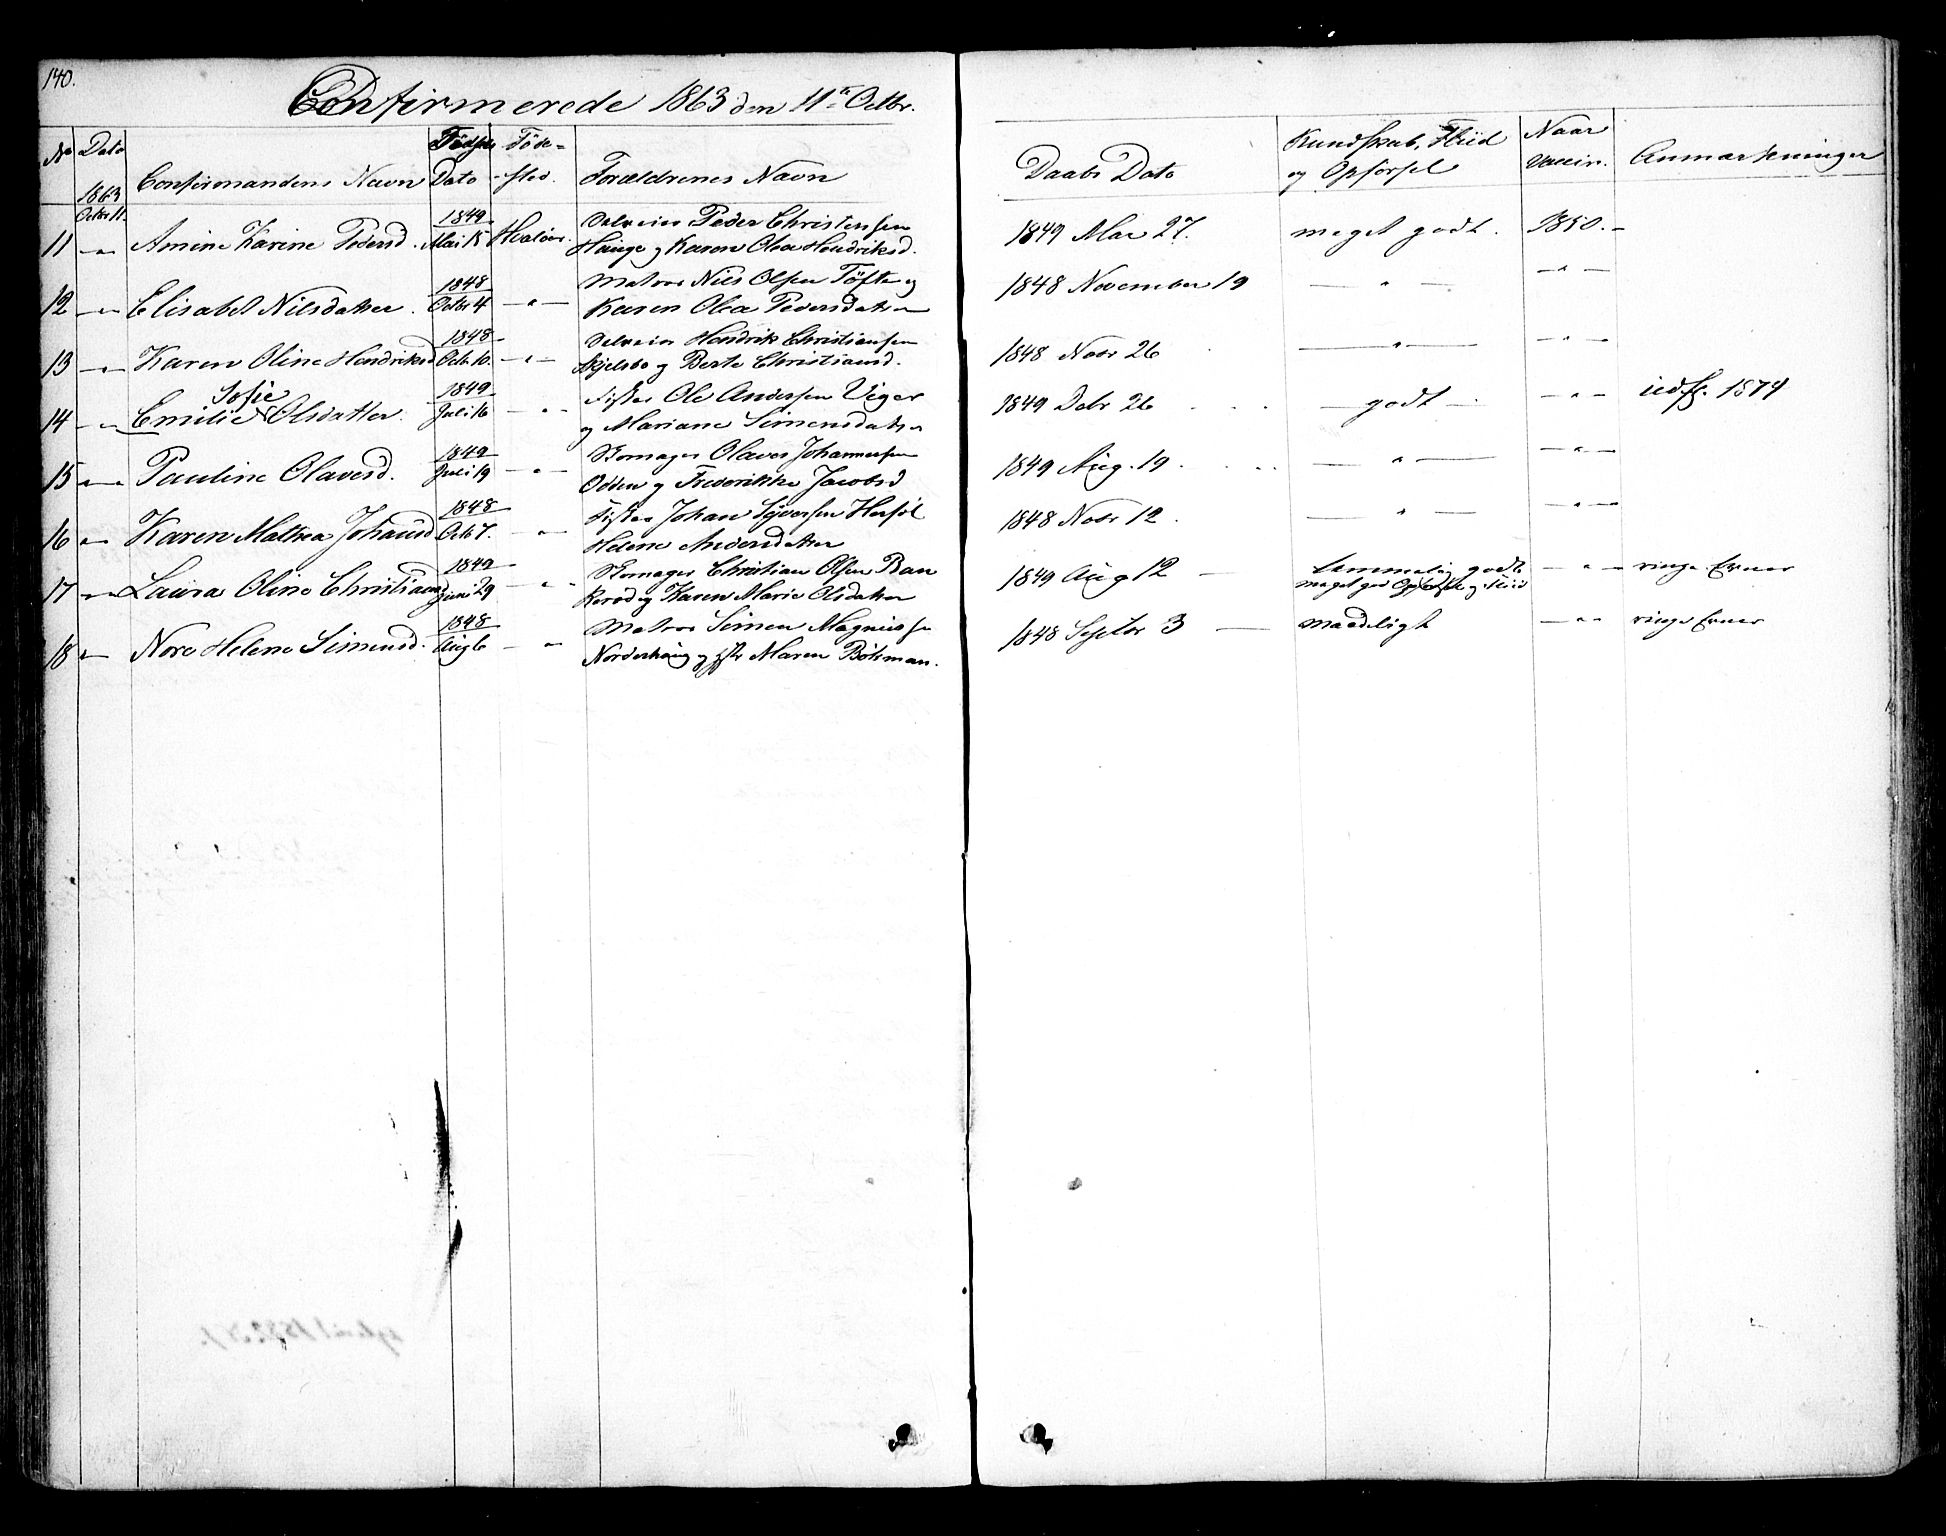 140.
Confirmerede 1863 den 11te Octbr.
No Dato Confirmandens Navn Fødsels Dato Føde-sted. Forældrenes Navn Daabs Dato Kundskab, Fliid og Opførsel Naar vaccin. Anmærkninger
1863
Octbr 11.
11 -"- Amine Karine Pedersd. 1849 Mai 15 Hvaløer. Selveier Peder Christensen 1849 Mar 27. meget godt. 1850.-
Hauge og Karen Olea Hendriksd.
12 -"- Elisabet Nilsdatter. 1848 Octbr 4 -"- Matros Nils Olsen Tøfte og 1848 November 19 -"- -"-
Karen Olea Pedersdatter
13 -"- Karen Oline Hendriksd 1848 Octb. 10. -"- Selveier Hendrik Christiansen 1848 Novr 26 -"- -"-
Skjelsbo og Berte Christiansd.
14 -"- Emilie Sofie Olsdatter. 1849 Juli 16 -"- Fisker Ole Andersen Viger 1849 Debr 26 -godt- -"- udsk. 1874
og Mariane Simensdatter
15 -"- Pauline Olavesd. 1849 Juli 19 -"- Skomager Olaves Johannessen 1849 Aug. 19. -"- -"-
Odden og Frederikke Jacobsd
16 -"- Karen Mathea Johansd 1848 Octb 7. -"- Fisker Johan Syversen 1848 Novr 12. -"- -"-
Helene Andersdatter
17 -"- Laura Oline Christians 1849 Juni 29 -"- Skomager Christian Olsen Ban 1849 Aug 12 - temmelig godt -"- ringe Evner
kerød og Karen Marie Olsdatter meget god Opførsel og Fliid
18 -"- Nore Helene Simensd. 1848 Aug 6 -"- Matros Simen Magnussen 1848 Septbr 3 - maadeligt -"- ringe Evner
Norderhaug og Maren Bøkman.